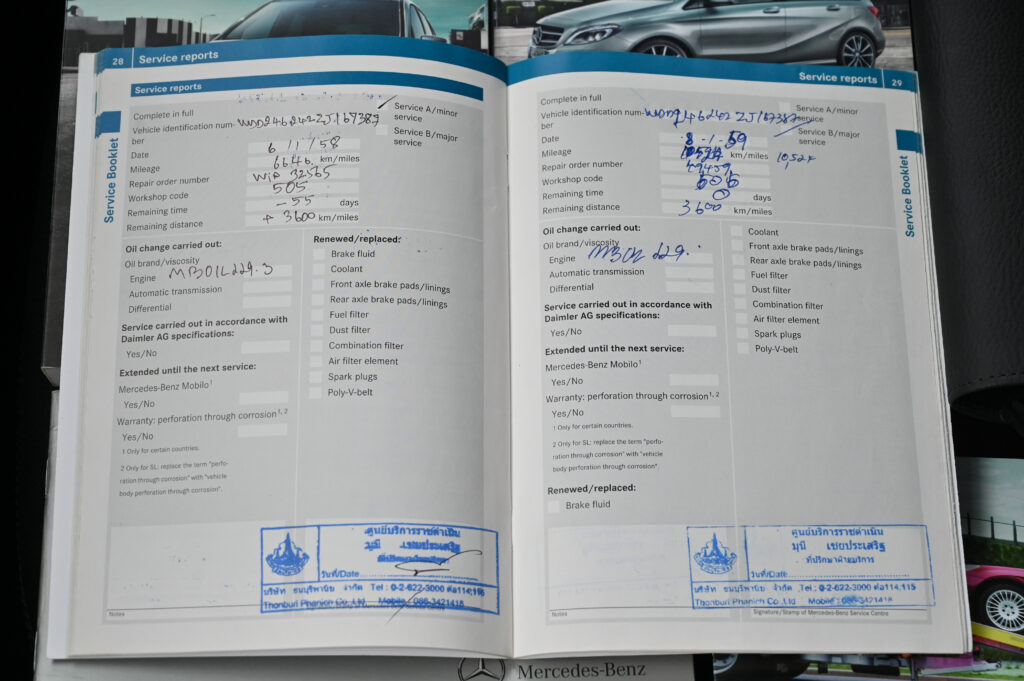 28 Service reports
Service reports
Complete in full
Vehicle identification num-
ber
WDD246242 2J167389
Service A/minor
service
Service B/major
service
Date 6 11 / 58
Mileage 6646 km/miles
Repair order number WIP 32565
Workshop code 505
Remaining time - 55 days
Remaining distance + 3600 km/miles
Service Booklet
Oil change carried out:
Oil brand/viscosity
Engine MB OIL 229.3
Automatic transmission
Differential
Service carried out in accordance with
Daimler AG specifications:
Yes/No
Extended until the next service:
Mercedes-Benz Mobilo1
Yes/No
Warranty: perforation through corrosion1, 2
Yes/No
1 Only for certain countries.
2 Only for SL: replace the term "perfo-
ration through corrosion" with "vehicle
body perforation through corrosion".
Renewed/replaced:
Brake fluid
Coolant
Front axle brake pads/linings
Rear axle brake pads/linings
Fuel filter
Dust filter
Combination filter
Air filter element
Spark plugs
Poly-V-belt
ศูนย์บริการราชดำเนิน
มุนี เชยประเสริฐ
วันที่/Date
บริษัท ธนบุรีพานิช จำกัด Tel : 0-2-622-3000 ต่อ114,115
Thonburi Phanich Co.,Ltd Mobile : 086-3421415
Notes
Service reports 29
Complete in full
Vehicle identification num-
ber
WDD246242 2J167387
Service A/minor
service
Service B/major
service
Date 8 - 1 - 59
Mileage km/miles 10,524
Repair order number
Workshop code
Remaining time days
Remaining distance 3600 km/miles
Service Booklet
Oil change carried out:
Oil brand/viscosity
Engine MB OIL 229.
Automatic transmission
Differential
Service carried out in accordance with
Daimler AG specifications:
Yes/No
Extended until the next service:
Mercedes-Benz Mobilo1
Yes/No
Warranty: perforation through corrosion1, 2
Yes/No
1 Only for certain countries.
2 Only for SL: replace the term "perfo-
ration through corrosion" with "vehicle
body perforation through corrosion".
Renewed/replaced:
Brake fluid
Coolant
Front axle brake pads/linings
Rear axle brake pads/linings
Fuel filter
Dust filter
Combination filter
Air filter element
Spark plugs
Poly-V-belt
ศูนย์บริการราชดำเนิน
มุนี เชยประเสริฐ
ที่ปรึกษาฝ่ายบริการ
วันที่/Date
บริษัท ธนบุรีพานิช จำกัด Tel : 0-2-622-3000 ต่อ114,115
Thonburi Phanich Co.,Ltd Mobile : 086-3421415
Notes
Signature/Stamp of Mercedes-Benz Service Centre
Mercedes-Benz